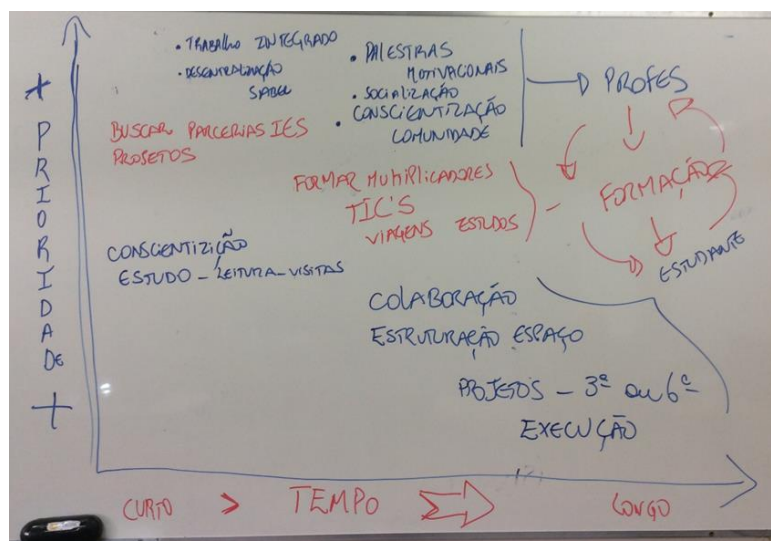 • TRABALHO INTEGRADO
• DESENTRALIZAÇÃO
SABER
• PALESTRAS
MOTIVACIONAIS
• SOCIALIZAÇÃO
• CONSCIENTIZAÇÃO
COMUNIDADE
PROFES
BUSCAR PARCERIAS IES
PROJETOS
FORMAR MULTIPLICADORES
TIC'S
VIAGENS ESTUDOS
FORMAÇÃO
ESTUDANTE
CONSCIENTIZIÇÃO
ESTUDO - LEITURA - VISITAS
COLABORAÇÃO
ESTRUTURAÇÃO ESPAÇO
PROJETOS - 3ª ou 6ª
EXECUÇÃO
+ PRIORIDADE +
CURTO > TEMPO LONGO